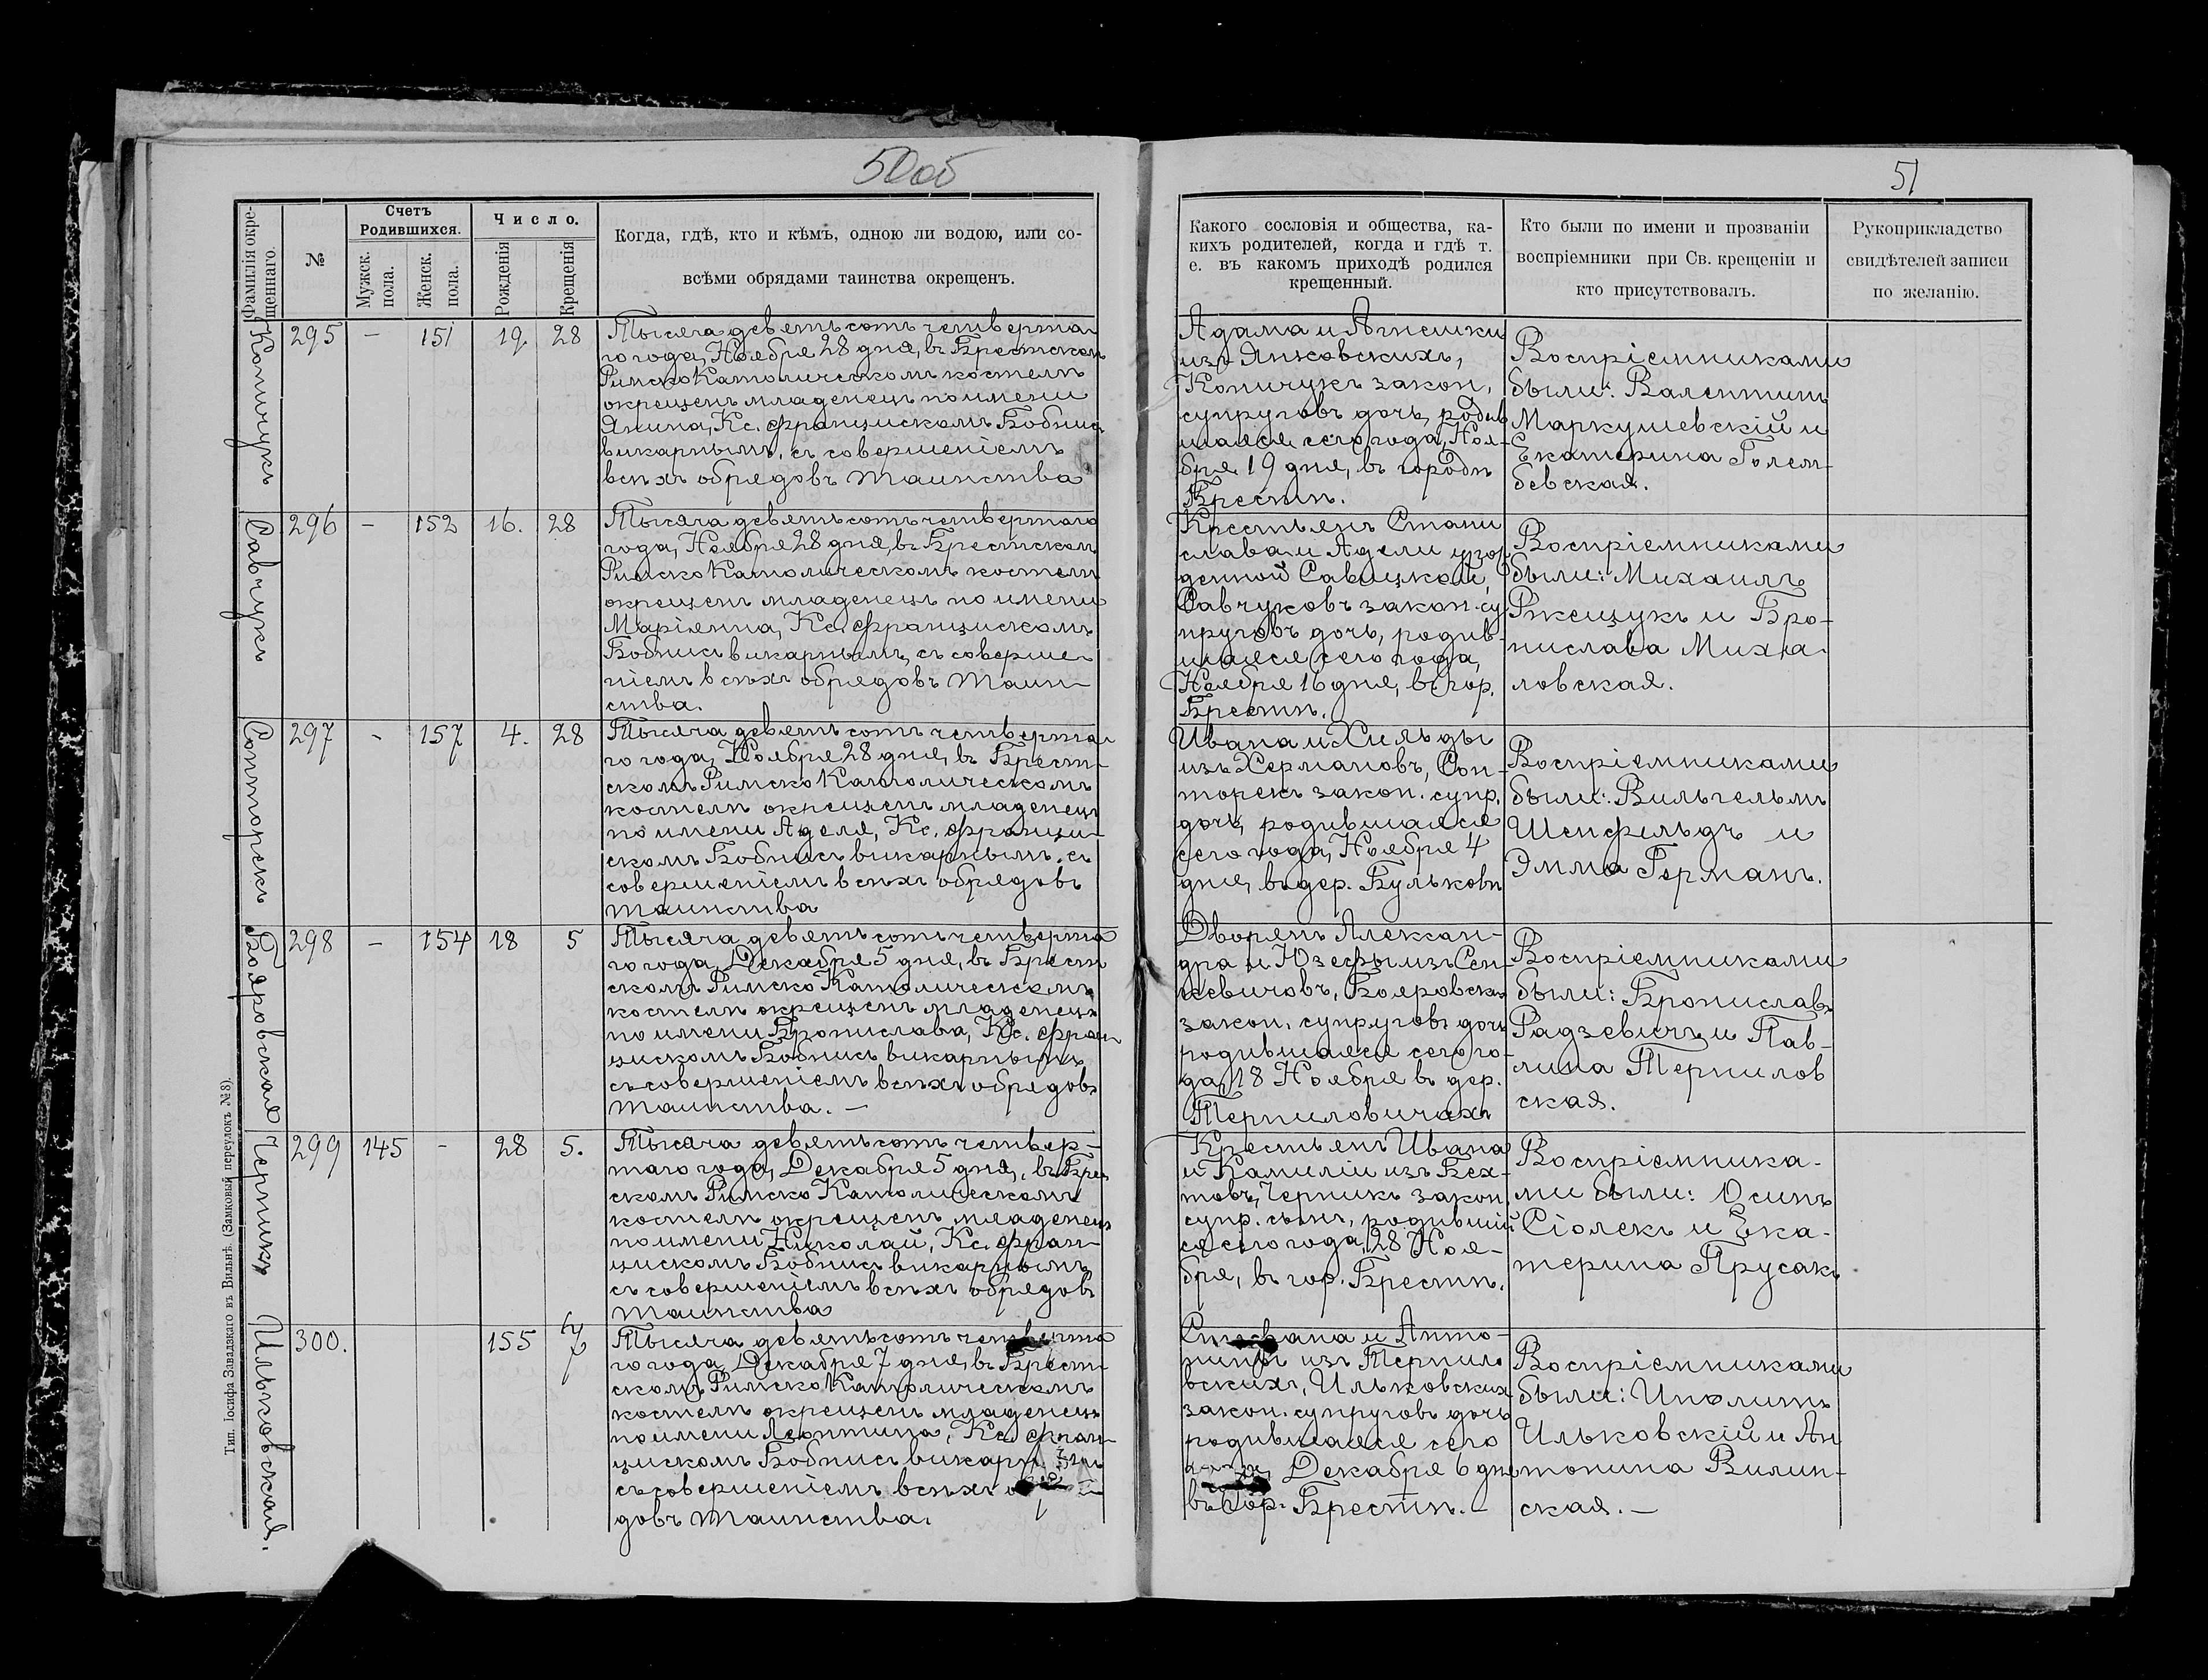 50об
51
Фамилія окре-
щеннаго.
№
Счетъ
Родившихся.
Мужск.
пола.
Женск.
пола.
Число.
Рожденія
Крещенія
Когда, гдѣ, кто и кѣмъ, одною ли водою, или со-
всѣми обрядами таинства окрещенъ.
Какого сословія и общества, ка-
кихъ родителей, когда и гдѣ т.
е. въ какомъ приходѣ родился
крещенный.
Кто были по имени и прозваніи
воспріемники при Св. крещеніи и
кто присутствовалъ.
Рукоприкладство
свидѣтелей записи
по желанію.
295 - 151 19. 28
Тысяча девятьсотъ четверта-
го года, Ноября 28 дня, въ Брестском
Римско Католическомъ костелѣ
окрещенъ младенецъ по имени
Янина, Кс. Францискомъ Бобнис
викарнымъ, съ совершеніемъ
всѣхъ обрядовъ Таинства
Адама и Агнешки
изъ Янковскихъ,
закон.
супруговъ дочь, родив
шаяся сего года, Ноя-
бря 19 дня, въ городѣ
Брестѣ.
Воспріемниками
были: Валентинъ
Маркушевскій и
Екатерина Голем-
бевская.
Савчукъ
296 - 152 16. 28
Тысяча девятьсотъ четвертаго
года, Ноября 28 дня, въ Брестском
Римско Католическомъ костелѣ
окрещенъ младенецъ по имени
Маріянна, Кс. Францискомъ
Бобнисъ викарнымъ, съ соверше-
ніемъ всѣхъ обрядовъ Таин-
ства.
Крестьянъ Стани
слава и Адели урож
денной Савицкой,
Савчуковъ закон. су
пруговъ дочь, родив-
шаяся сего года,
Ноября 16 дня, въ гор.
Брестѣ.
Воспріемниками
были: Михаилъ
и Бро-
нислава Миха-
ловская.
Сонторекъ
297 - 157 4. 28
Тысяча девятьсотъ четверта-
го года, Ноября 28 дня, въ Брест-
скомъ Римско Католическомъ
костелѣ окрещенъ младенецъ
по имени Аделя, Кс. Франци-
скомъ Бобнисъ викарнымъ, съ
совершеніемъ всѣхъ обрядовъ
таинства
Ивана и Хильды
изъ Хермановъ, Сон-
торекъ закон. супр.
дочь, родившаяся
сего года, Ноября 4
дня, въ дер. Бульковѣ
Воспріемниками
были: Вильгельмъ
Шенфельдъ и
Эмма Германъ.
Бояровская
298 - 154 18 5
Тысяча девятьсотъ четверта
го года, Декабря 5 дня, въ Брест
скомъ Римско Католическомъ
костелѣ окрещенъ младенецъ
по имени Бронислава, Кс. Фран
цискомъ Бобнисъ викарнымъ
съ совершеніемъ всѣхъ обрядовъ
таинства. -
Дворянъ Алексан-
дра и Юзефы изъ Сен-
кевичовъ, Бояровских
закон. супруговъ дочь
родившаяся сего го-
да, 18 Ноября въ дер.
Терпиловичахъ
Воспріемниками
были: Брониславъ
Радзевичъ и Пав-
лина Терпилов
ская.
Черникъ
299 145 - 28 5.
Тысяча девятьсотъ четвер-
таго года, Декабря 5 дня, въ Брес
скомъ Римско Католическомъ
костелѣ окрещенъ младенецъ
по имени Николай, Кс. Фран-
цискомъ Бобнисъ викарнымъ
съ совершеніемъ всѣхъ обрядовъ
таинства
Крестьянъ Ивана
и Камиліи изъ Бех-
товъ, Черникъ закон.
супр. сынъ, родившій
ся сего года, 28 Ноя-
бря, въ гор. Брестѣ.
Воспріемника-
ми были: Осипъ
Сіолекъ и Ека-
терина Прусакъ
Ильковская.
300. 155 7
Тысяча девятьсотъ четверта
го года, Декабря 7 дня, въ Брест-
скомъ Римско Католическомъ
костелѣ окрещенъ младенецъ
по имени Леонтина, Кс. Фран-
цискомъ Бобнисъ
съ совершеніемъ всѣхъ
довъ таинства.
Стефана и Анто-
нины изъ Терпило
вскихъ, Ильковских
закон. супруговъ дочь
родившаяся сего
Декабря 6 дня
въ гор. Брестѣ. -
Воспріемниками
были: Иполитъ
Ильковскій и Ан
тонина Вилин-
ская. -
Тип. Іосифа Завадзкаго въ Вильнѣ. (Замковый переулокъ №8).